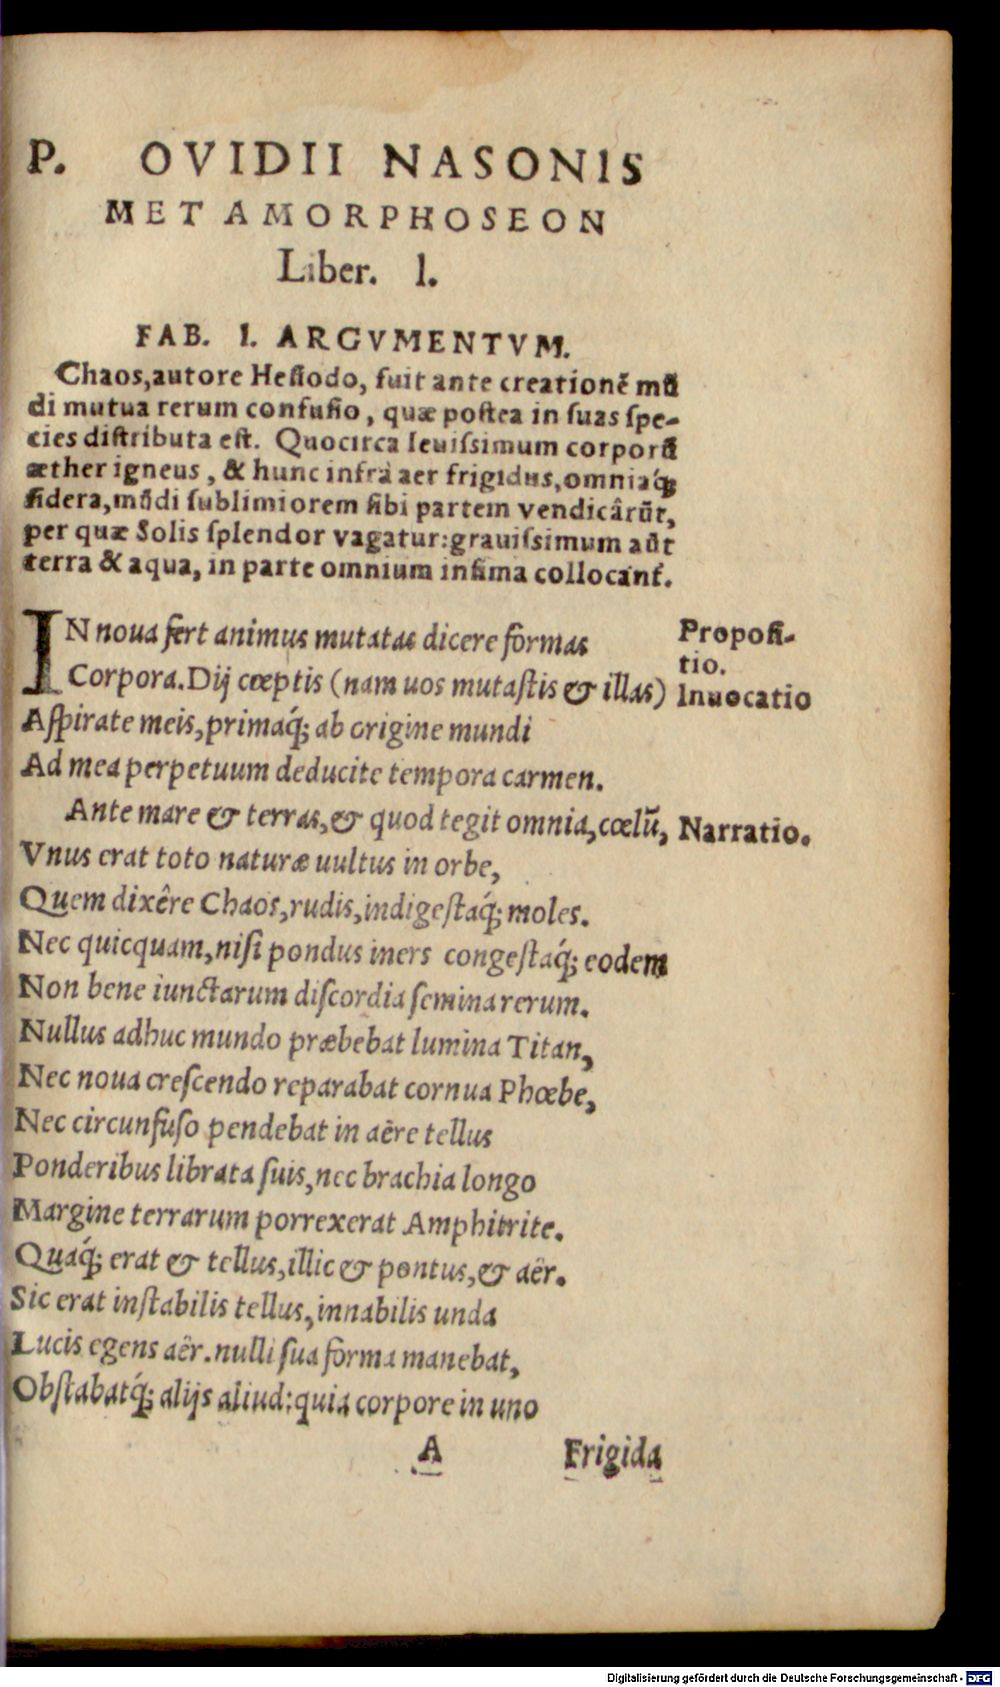 P. OVIDII NASONIS
METAMORPHOSEON
Liber. I.
FAB. I. ARGVMENTVM.
Chaos, autore Hesiodo, fuit ante creationẽ mũ
di mutua rerum confusio, quæ postea in suas spe-
cies distributa est. Quocirca leuissimum corporũ
æther igneus, & hunc infrà aer frigidus, omniaq́;
sidera, mũdi sublimiorem sibi partem vendicârũt,
per quæ Solis splendor vagatur: grauissimum aũt
terra & aqua, in parte omnium infima collocant.
IN noua fert animus mutatas dicere formas Proposi-
tio.
Corpora. Dij cœptis (nam uos mutastis & illas) Inuocatio
Aspirate meis, primaq́; ab origine mundi
Ad mea perpetuum deducite tempora carmen.
Ante mare & terras, & quod tegit omnia, cœlũ, Narratio.
Vnus erat toto naturæ uultus in orbe,
Quem dixêre Chaos, rudis, indigestaq́; moles.
Nec quicquam, nisi pondus iners congestaq́; eodem
Non bene iunctarum discordia semina rerum.
Nullus adhuc mundo præbebat lumina Titan,
Nec noua crescendo reparabat cornua Phœbe,
Nec circunfuso pendebat in aëre tellus
Ponderibus librata suis, nec brachia longo
Margine terrarum porrexerat Amphitrite.
Quaq́; erat & tellus, illic & pontus, & aër.
Sic erat instabilis tellus, innabilis unda
Lucis egens aër. nulli sua forma manebat,
Obstabatq́; alijs aliud: quia corpore in uno
A Frigida
Digitalisierung gefördert durch die Deutsche Forschungsgemeinschaft - DFG